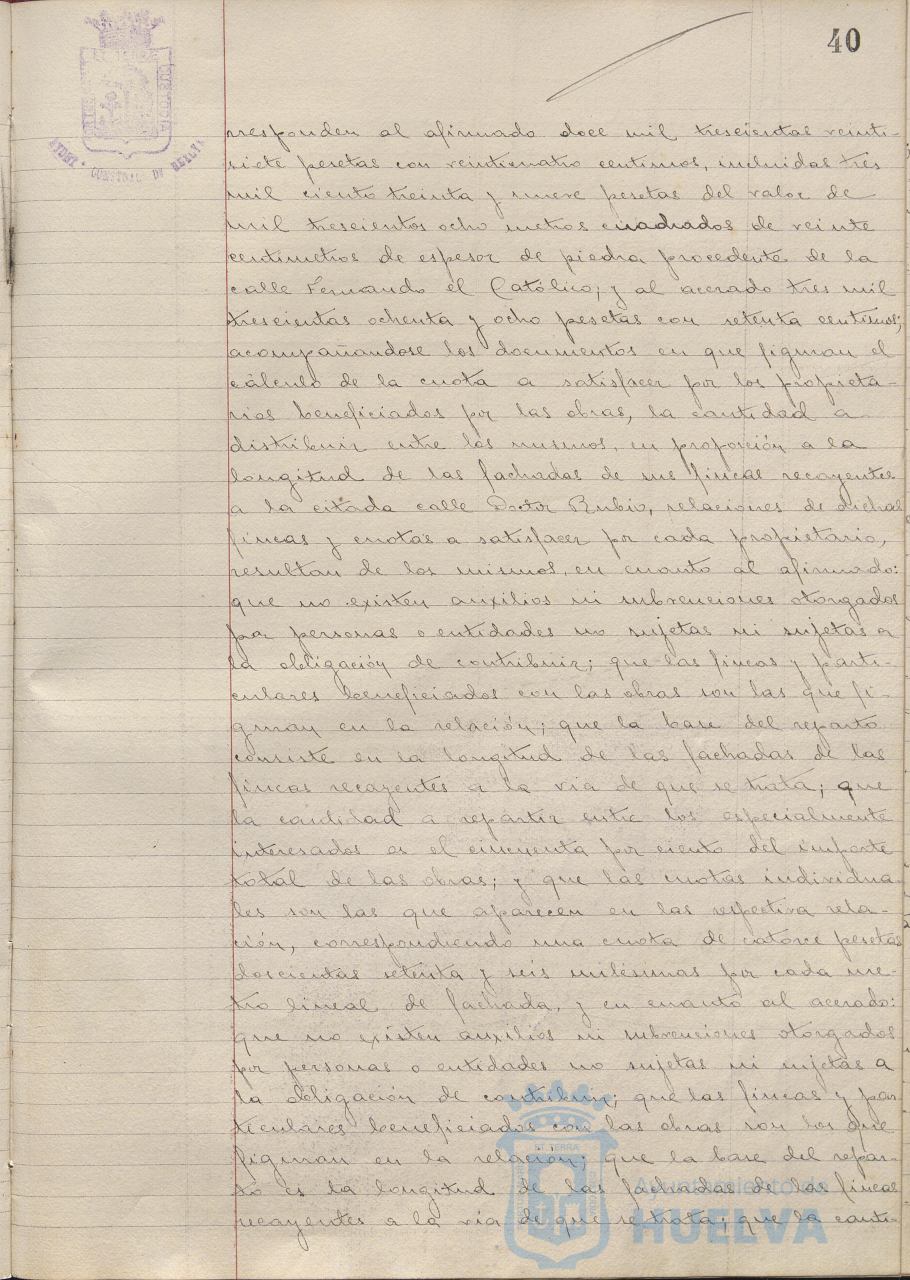 40
rresponden al afirmado doce mil trescientas veinti-
siete pesetas con veinticuatro centimos, incluidas tres
mil ciento treinta y nueve pesetas del valor de
mil trescientos ocho metros cuadrados de veinte
centimetros de espesor de piedra procedente de la
calle Fernando el Católico; y al acerado tres mil
trescientas ochenta y ocho pesetas con setenta centimos;
acompañandose los documentos en que figuran el
cálculo de la cuota a satisfacer por los propieta-
rios beneficiados por las obras, la cantidad a
distribuir entre los mismos, en proporción a la
longitud de las fachadas de sus fincas recayentes
a la citada calle Doctor Rubio, relaciones de dichas
fincas y cuotas a satisfacer por cada propietario,
resultan de los mismos, en cuanto al afirmado:
que no existen auxilios ni subvenciones otorgados
por personas o entidades no sujetas ni sujetas a
la obligación de contribuir; que las fincas y parti-
culares beneficiados con las obras son las que fi-
guran en la relación; que la base del reparto
consiste en la longitud de las fachadas de las
fincas recayentes a la via de que se trata; que
la cantidad a repartir entre los especialmente
interesados es el cincuenta por ciento del importe
total de las obras; y que las cuotas individua-
les son las que aparecen en las respectiva rela-
ción, correspondiendo una cuota de catorce pesetas
doscientas setenta y seis milésimas por cada me-
tro lineal de fachada, y en cuanto al acerado:
que no existen auxilios ni subvenciones otorgados
por personas o entidades no sujetas ni sujetas a
la obligación de contribuir; que las fincas y par-
ticulares beneficiados con las obras son los que
figuran en la relación; que la base del repar-
to es la longitud de las fachadas de las fincas
recayentes a la via de que se trata; que la canti-
Ayuntamiento de
HUELVA